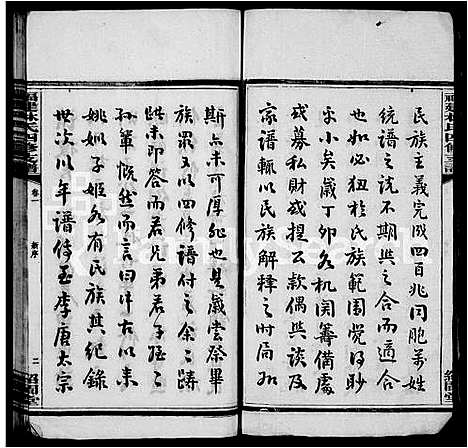 民族主義完成四百兆同胞萬姓
統譜之說不期與之合而適合
也如必狃於民族範圍覺得眇
乎小矣歲丁卯各机関籌備處
或募捐或之款偶與談及
家譜輒以民族解釋之時局如
斯亦未可厚非也是歲嘗祭畢
族眾又以四修譜付之余余躊
躇未即答而君兄弟君子侄
孫輩慨然而言曰中古以來
姚姒子姬各有民族其紀錄
世次以年譜侍至李唐太宗
福建林氏四修支譜
卷一
新序
二
紹閩堂